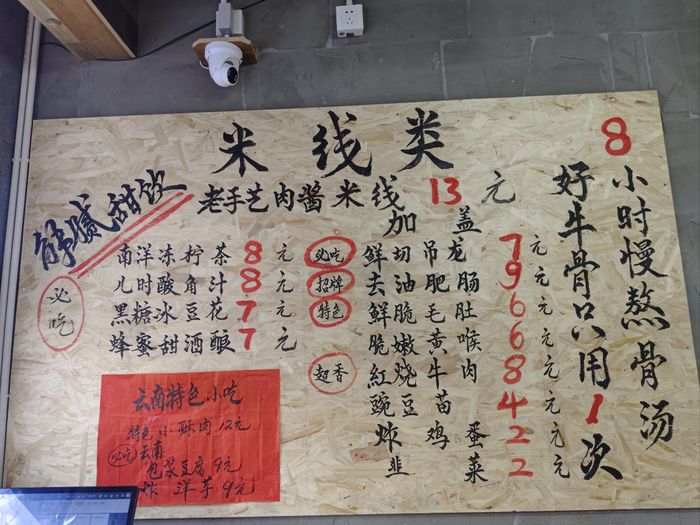 米线类
老手艺肉酱米线13元
解腻甜饮
必吃
南洋冻柠茶 8元
儿时酸角汁 8元
黑糖冰豆花 7元
蜂蜜甜酒酿 7元
加盖
必吃 鲜切吊龙 7元
招牌 去油肥肠 9元
特色 鲜脆毛肚 6元
脆嫩黄喉 6元
紅烧牛肉 8元
豌豆苗 4元
炸鸡蛋 2元
韭菜 2元
8小时慢熬骨汤
好牛骨只用1次
云南特色小吃
特色小酥肉12元
必吃 云南
包浆豆腐9元
炸洋芋9元